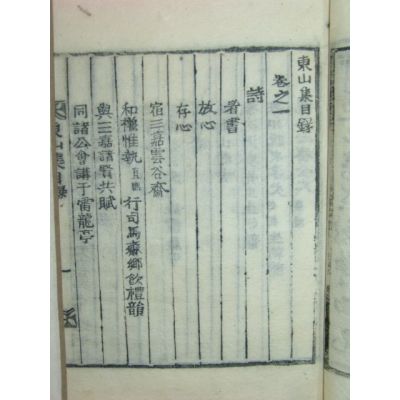 東山集目錄
卷之一
詩
看書
放心
存心
宿三嘉雲谷齋
和權惟執 行司馬齋鄉飲禮韻
與三嘉諸賢共賦
同諸公會講于雷龍亭
東山集目錄
一